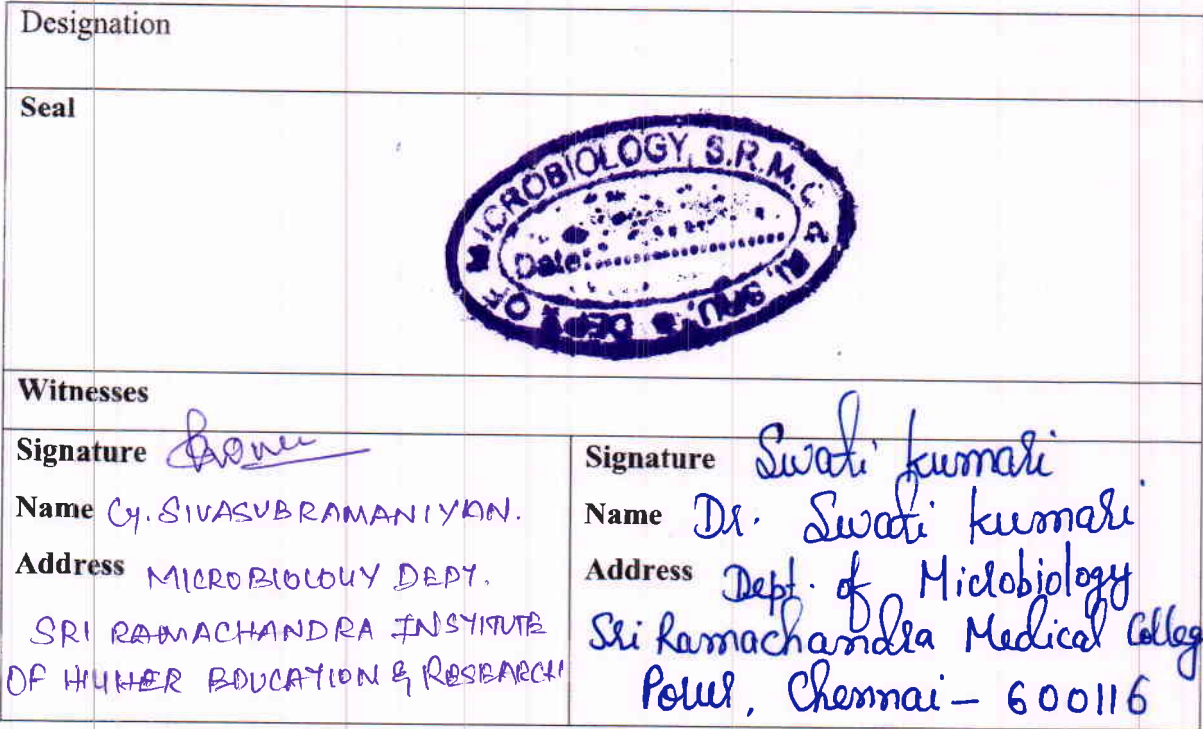 Designation
Seal
DEPT OF MICROBIOLOGY, S.R.M.C & R.I, SRU,
Date:
Witnesses
Signature
Name G. SIVASUBRAMANIYAN.
Address MICROBIOLOGY DEPT.
SRI RAMACHANDRA INSTITUTE
OF HIGHER EDUCATION & RESEARCH
Signature Swati kumari
Name Dr. Swati kumari
Address Dept. of Microbiology
Sri Ramachandra Medical Colleg
Porur, Chennai - 600116